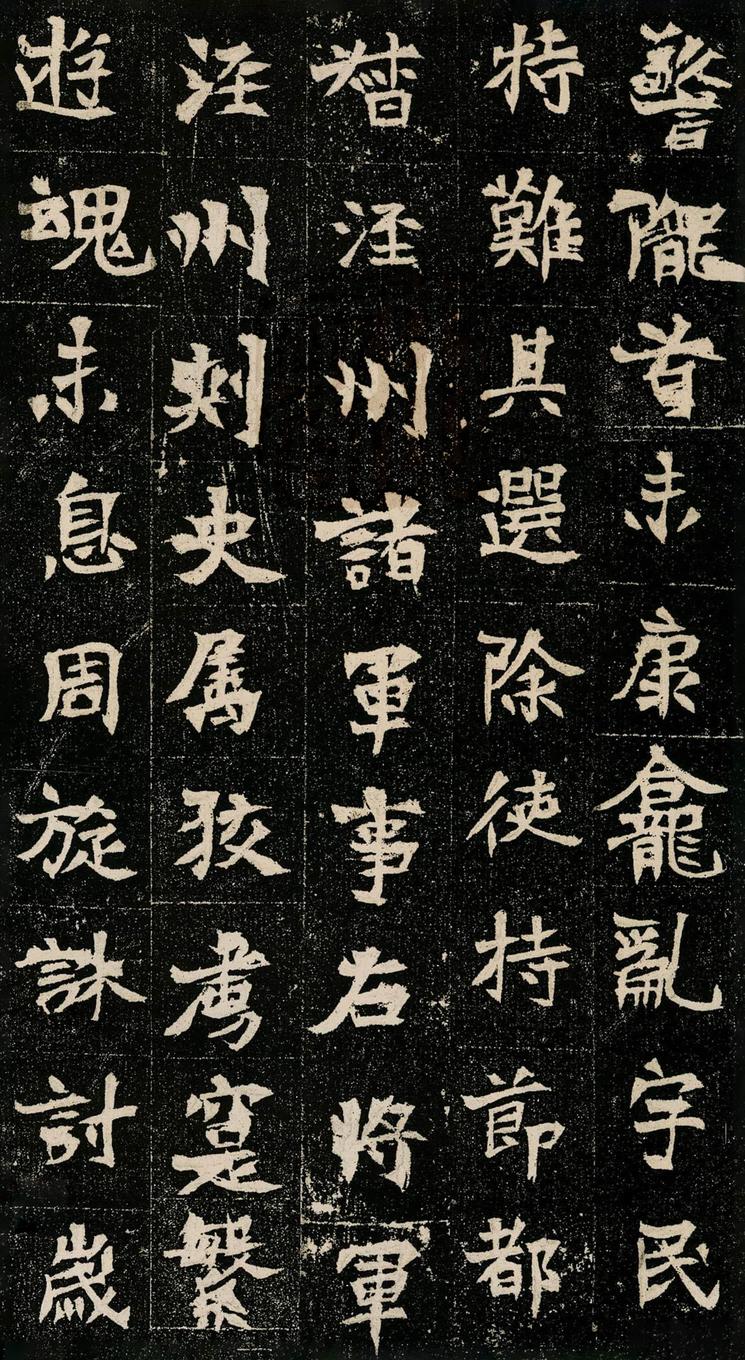 警隴首未康龕亂宇民
特難其選除使持節都
督涇州諸軍事右將軍
涇州刺史属狡虜寔繁
遊魂未息周旋誅討歲